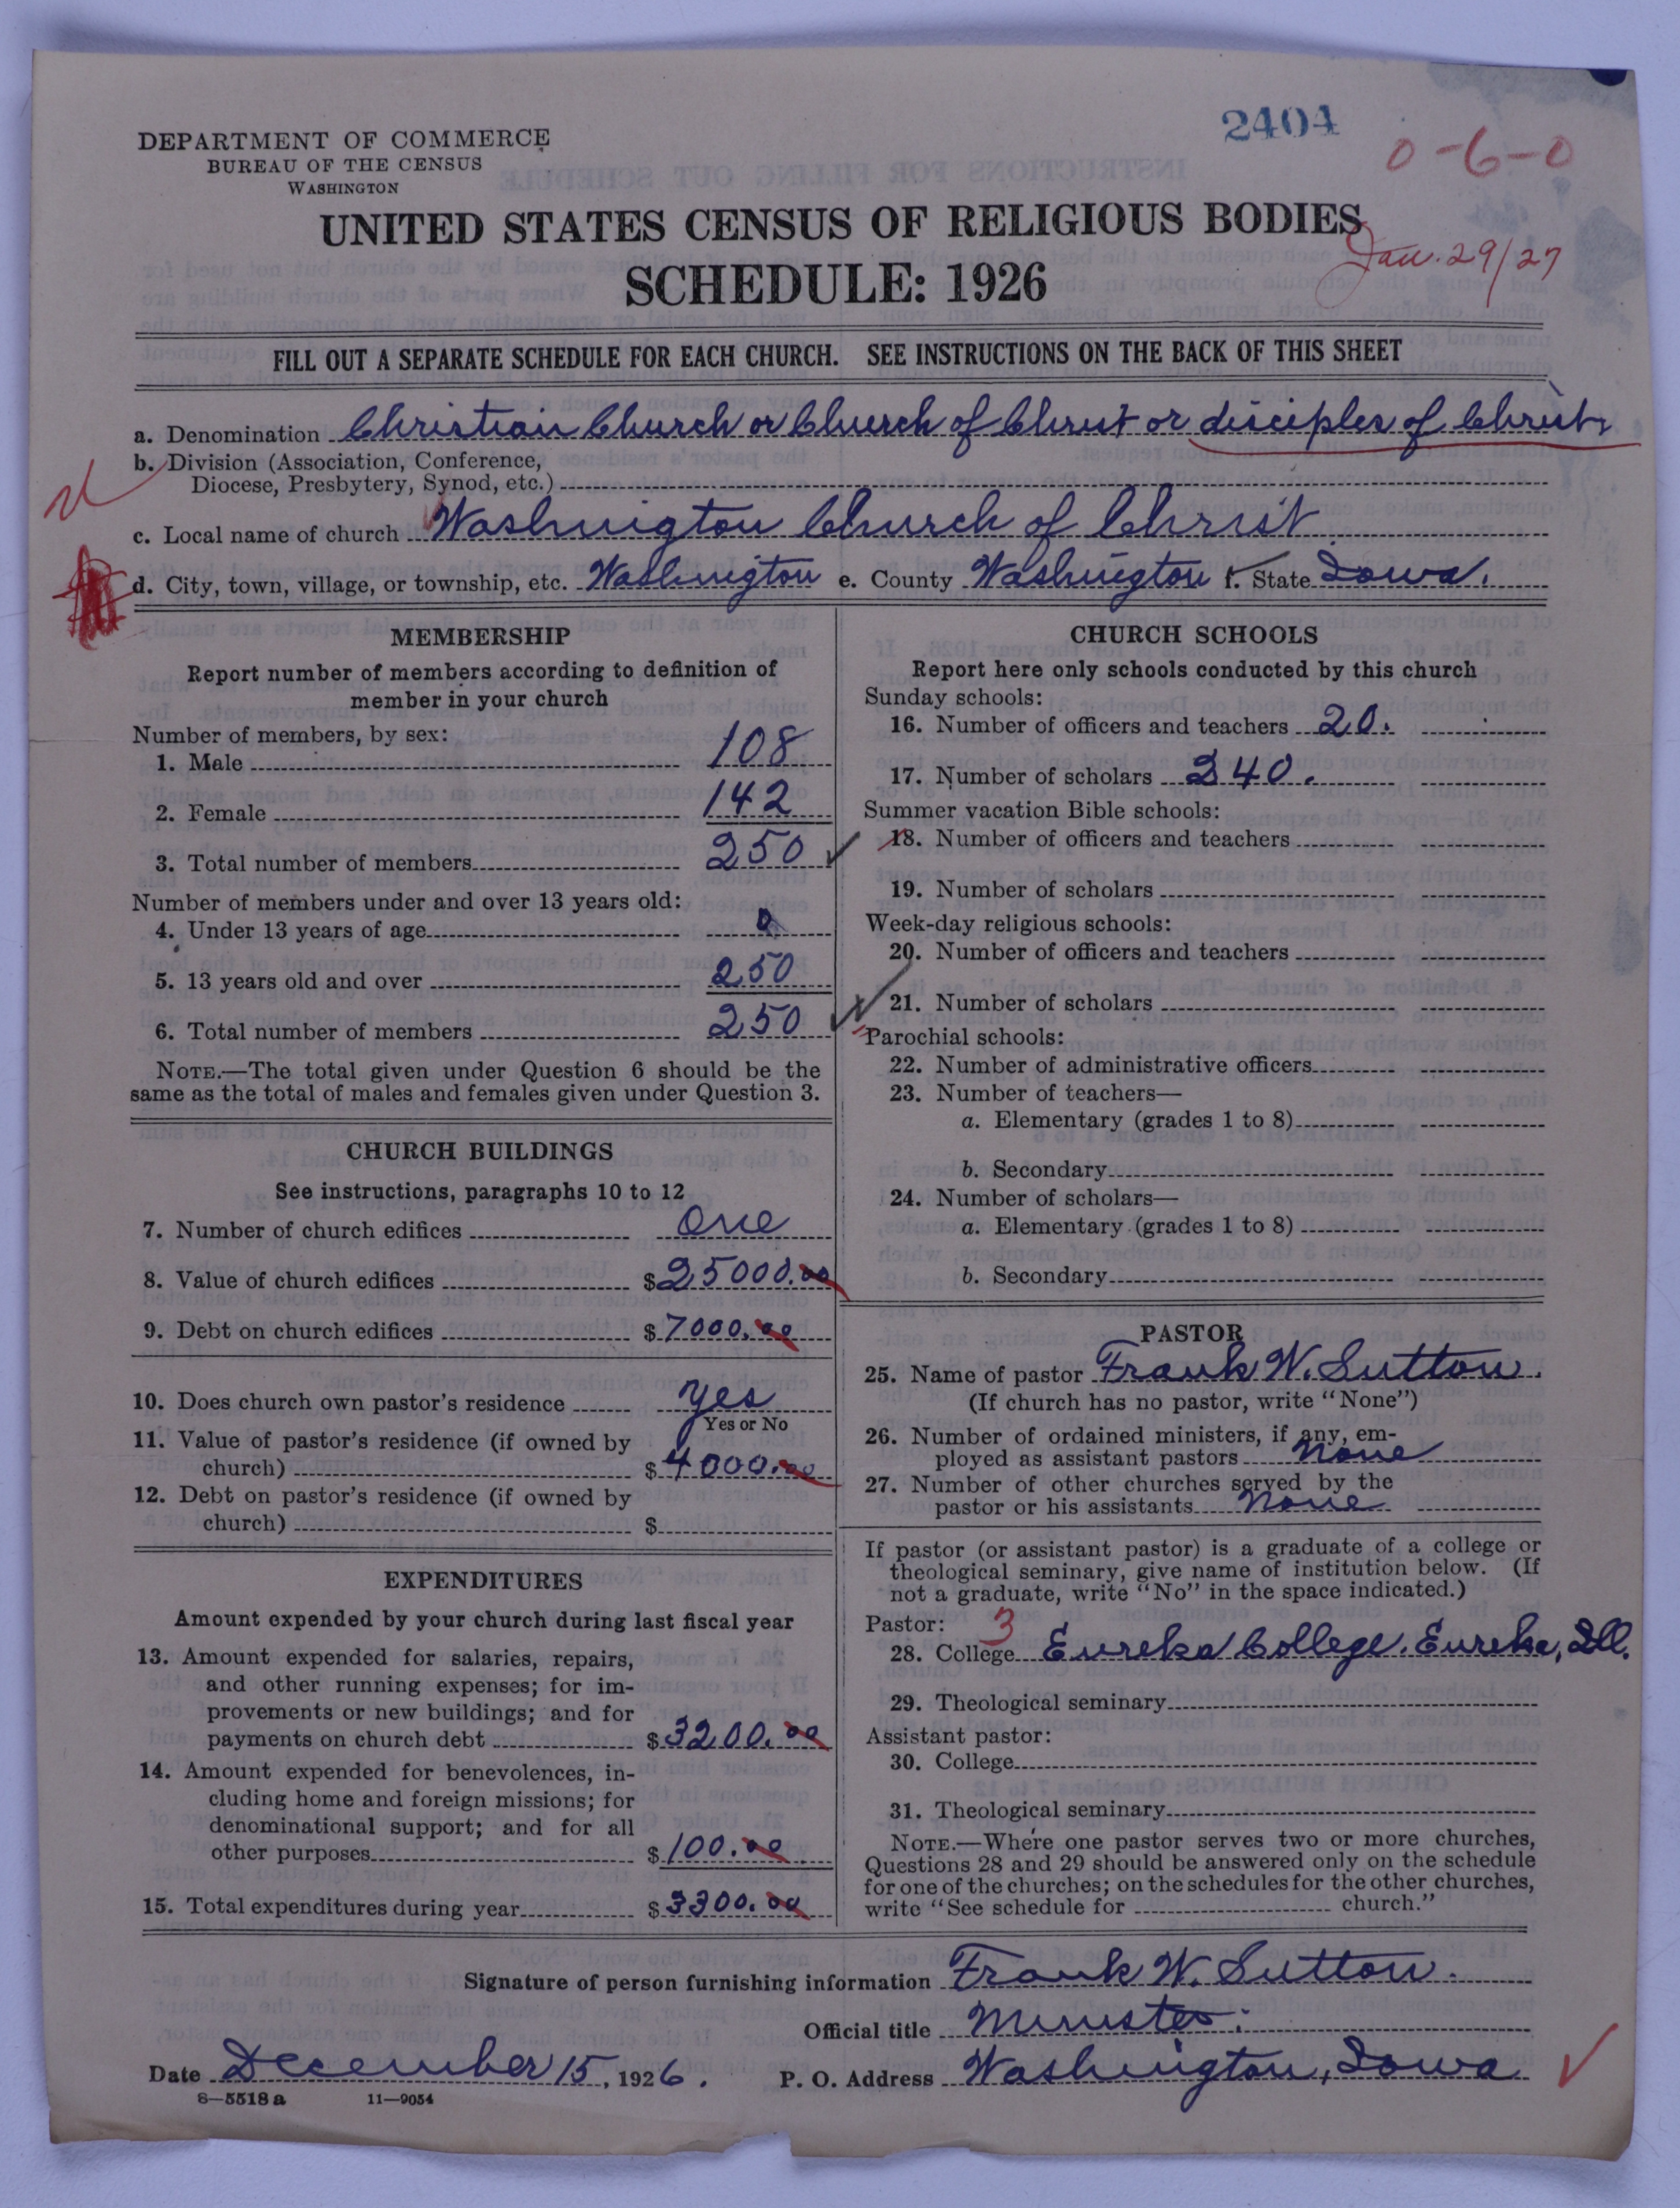 2404
0-6-0
DEPARTMENT OF COMMERCE
BUREAU OF THE CENSUS
WASHINGTON
UNITED STATES CENSUS OF RELIGIOUS BODIES
SCHEDULE: 1926
Jan. 29/27
FILL OUT A SEPARATE SCHEDULE FOR EACH CHURCH. SEE INSTRUCTIONS ON THE BACK OF THIS SHEET
a. Denomination Christian Church or Church of Christ or disciples of Christ.
b. Division (Association, Conference,
Diocese, Presbytery, Synod, etc.)
c. Local name of church Washington Church of Christ
d. City, town, village, or township, etc. Washington e. County Washington f. State Iowa.
MEMBERSHIP
Report number of members according to definition of
member in your church
Number of members, by sex:
1. Male 108
2. Female 142
3. Total number of members 250
Number of members under and over 13 years old:
4. Under 13 years of age 0
5. 13 years old and over 250
6. Total number of members 250
NOTE.—The total given under Question 6 should be the
same as the total of males and females given under Question 3.
CHURCH BUILDINGS
See instructions, paragraphs 10 to 12
7. Number of church edifices One
8. Value of church edifices $25000.00
9. Debt on church edifices $7000.00
10. Does church own pastor's residence yes
Yes or No
11. Value of pastor's residence (if owned by
church) $4000.00
12. Debt on pastor's residence (if owned by
church) $
EXPENDITURES
Amount expended by your church during last fiscal year
13. Amount expended for salaries, repairs,
and other running expenses; for im-
provements or new buildings; and for
payments on church debt $3200.00
14. Amount expended for benevolences, in-
cluding home and foreign missions; for
denominational support; and for all
other purposes $100.00
15. Total expenditures during year $3300.00
CHURCH SCHOOLS
Report here only schools conducted by this church
Sunday schools:
16. Number of officers and teachers 20.
17. Number of scholars 240.
Summer vacation Bible schools:
18. Number of officers and teachers
19. Number of scholars
Week-day religious schools:
20. Number of officers and teachers
21. Number of scholars
Parochial schools:
22. Number of administrative officers
23. Number of teachers—
a. Elementary (grades 1 to 8)
b. Secondary
24. Number of scholars—
a. Elementary (grades 1 to 8)
b. Secondary
PASTOR
25. Name of pastor Frank W. Sutton.
(If church has no pastor, write "None")
26. Number of ordained ministers, if any, em-
ployed as assistant pastors None
27. Number of other churches served by the
pastor or his assistants None
If pastor (or assistant pastor) is a graduate of a college or
theological seminary, give name of institution below. (If
not a graduate, write "No" in the space indicated.)
Pastor: 3
28. College Eureka College. Eureka, Ill.
29. Theological seminary
Assistant pastor:
30. College
31. Theological seminary
NOTE.—Where one pastor serves two or more churches,
Questions 28 and 29 should be answered only on the schedule
for one of the churches; on the schedules for the other churches,
write "See schedule for church."
Signature of person furnishing information Frank W. Sutton.
Official title Minister.
Date December 15, 1926. P. O. Address Washington, Iowa
8—5518a 11—9054